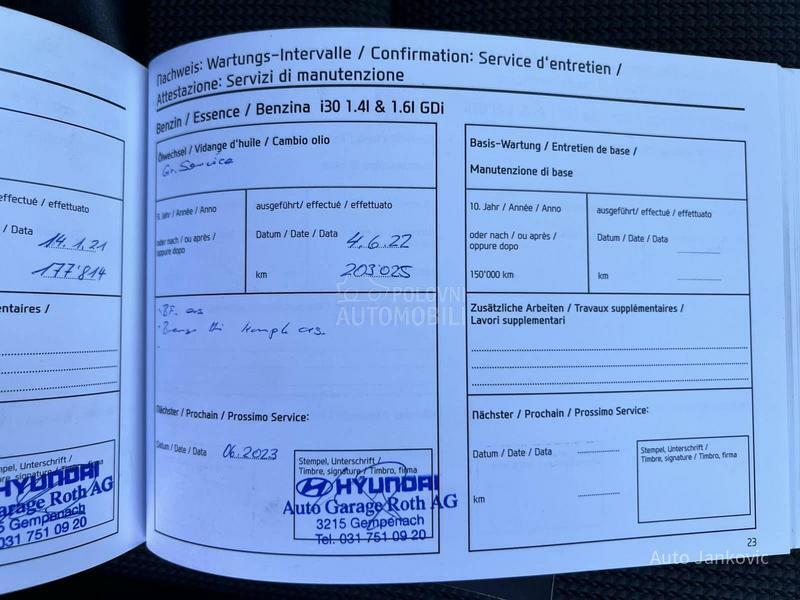 Nachweis: Wartungs-Intervalle / Confirmation: Service d'entretien /
Attestazione: Servizi di manutenzione
Benzin / Essence / Benzina i30 1.4l & 1.6l GDi
effectué / effettuato
/ Data
14.1.21
177'814
entaires /
pel, Unterschrift /
re, signature / Timbro, firma
HYUNDAI
arage Roth AG
5 Gempenach
031 751 09 20
Ölwechsel / Vidange d'huile / Cambio olio
Gr. Service
Jahr / Année / Anno
oder nach / ou après /
oppure dopo
ausgeführt/ effectué / effettuato
Datum / Date / Data 4.6.22
km 203'025
Nächster / Prochain / Prossimo Service:
Datum / Date / Data 06.2023
Stempel, Unterschrift /
Timbre, signature / Timbro, firma
HYUNDAI
Auto Garage Roth AG
3215 Gempenach
Tel. 031 751 09 20
Basis-Wartung / Entretien de base /
Manutenzione di base
10. Jahr / Année / Anno
oder nach / ou après /
oppure dopo
150'000 km
ausgeführt/ effectué / effettuato
Datum / Date / Data
km
Zusätzliche Arbeiten / Travaux supplémentaires /
Lavori supplementari
Nächster / Prochain / Prossimo Service:
Datum / Date / Data
km
Stempel, Unterschrift /
Timbre, signature / Timbro, firma
23
POLOVNI
AUTOMOBILI
Auto Jankovic